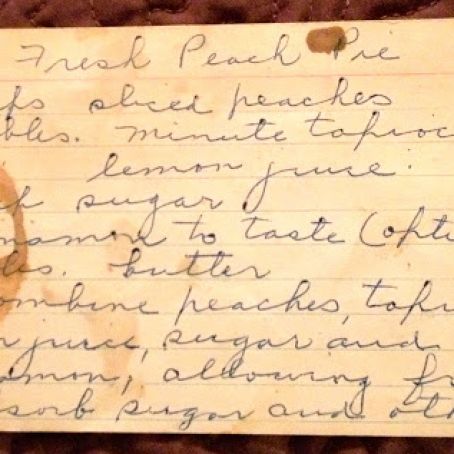 Fresh Peach Pie
ps sliced peaches
bles. minute tapioc
lemon juice.
p sugar
nnamon to taste (opti
bles. butter
ombine peaches, tapi
n juice, sugar and
amon, allowing fr
sorb sugar and oth